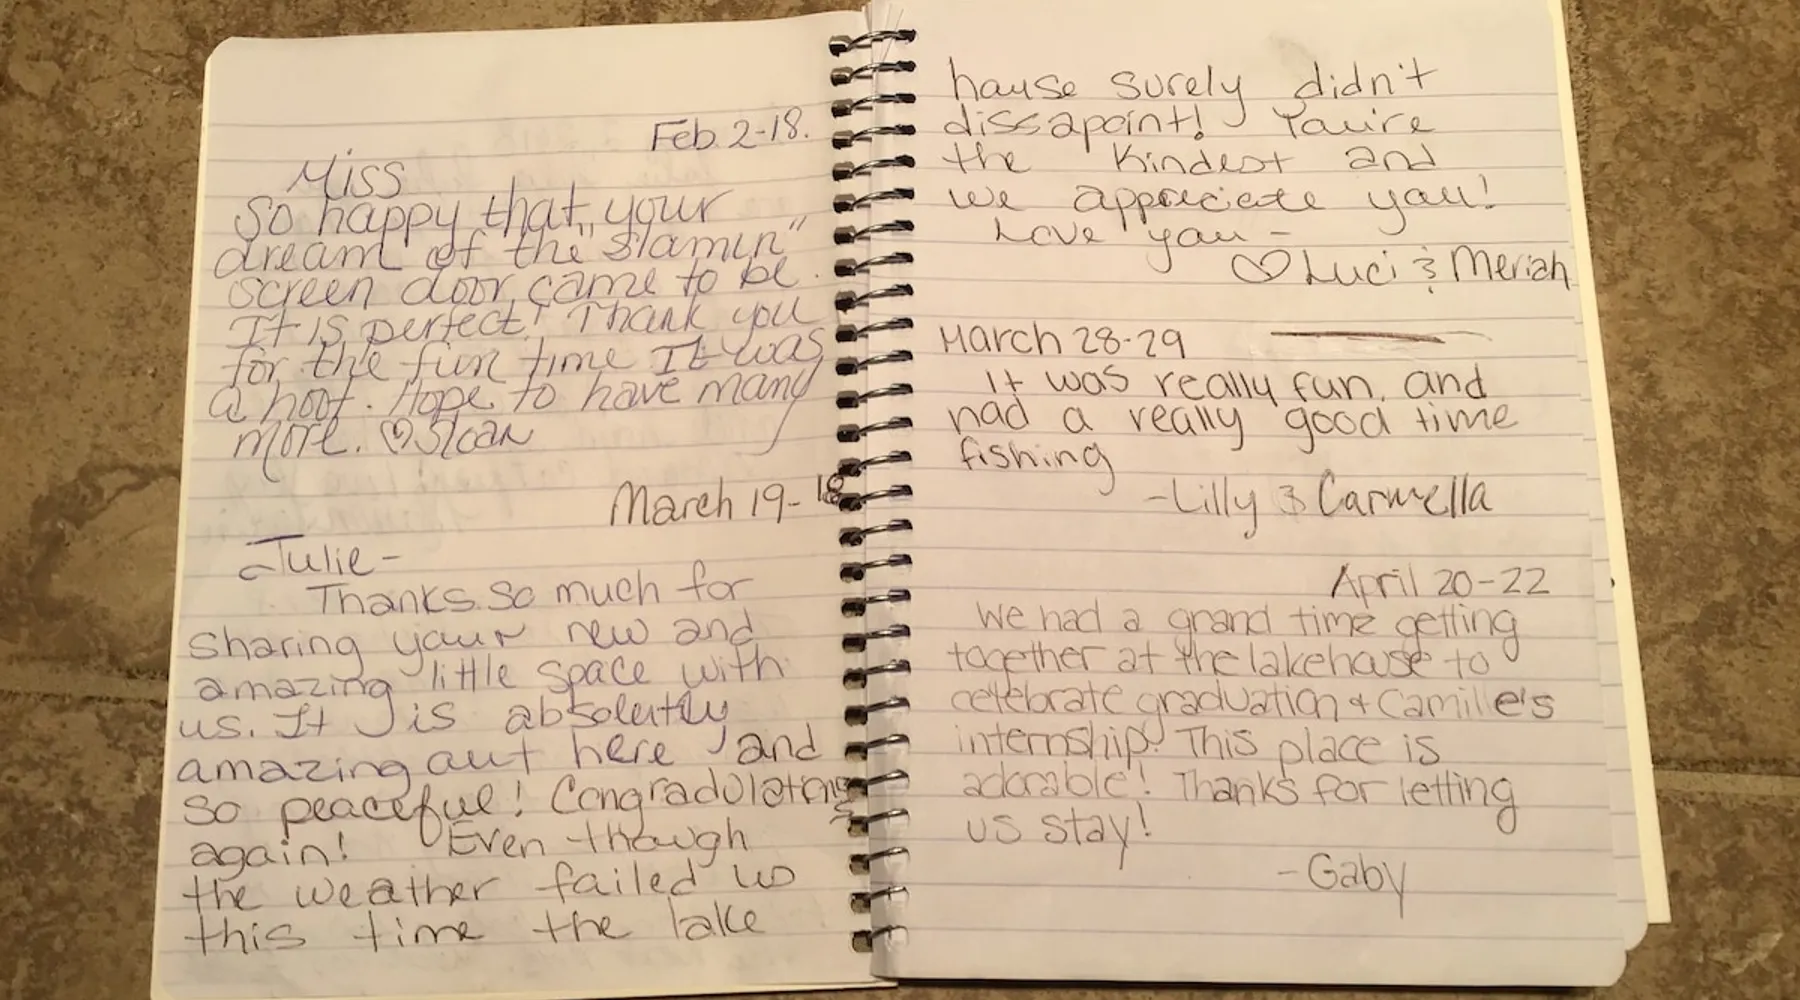 Feb. 2-18.
Miss
So happy that your
dream of the "slamin"
screen door came to be.
It is perfect! Thank you
for the fun time It was
a hoot. Hope to have many
more. ♡Sloan
March 19-18
Julie-
Thanks so much for
sharing your new and
amazing little space with
us. It is absolutly
amazing out here and
so peaceful! Congradulations
again! Even though
the weather failed us
this time the lake
house surely didn't
dissapoint! You're
the kindest and
we appreciate you!
Love you-
♡ Luci & Meriah
March 28-29
It was really fun, and
had a really good time
fishing
-Lilly & Carmella
April 20-22
We had a grand time getting
together at the lakehouse to
celebrate graduation & Camille's
internship! This place is
adorable! Thanks for letting
us stay!
-Gaby